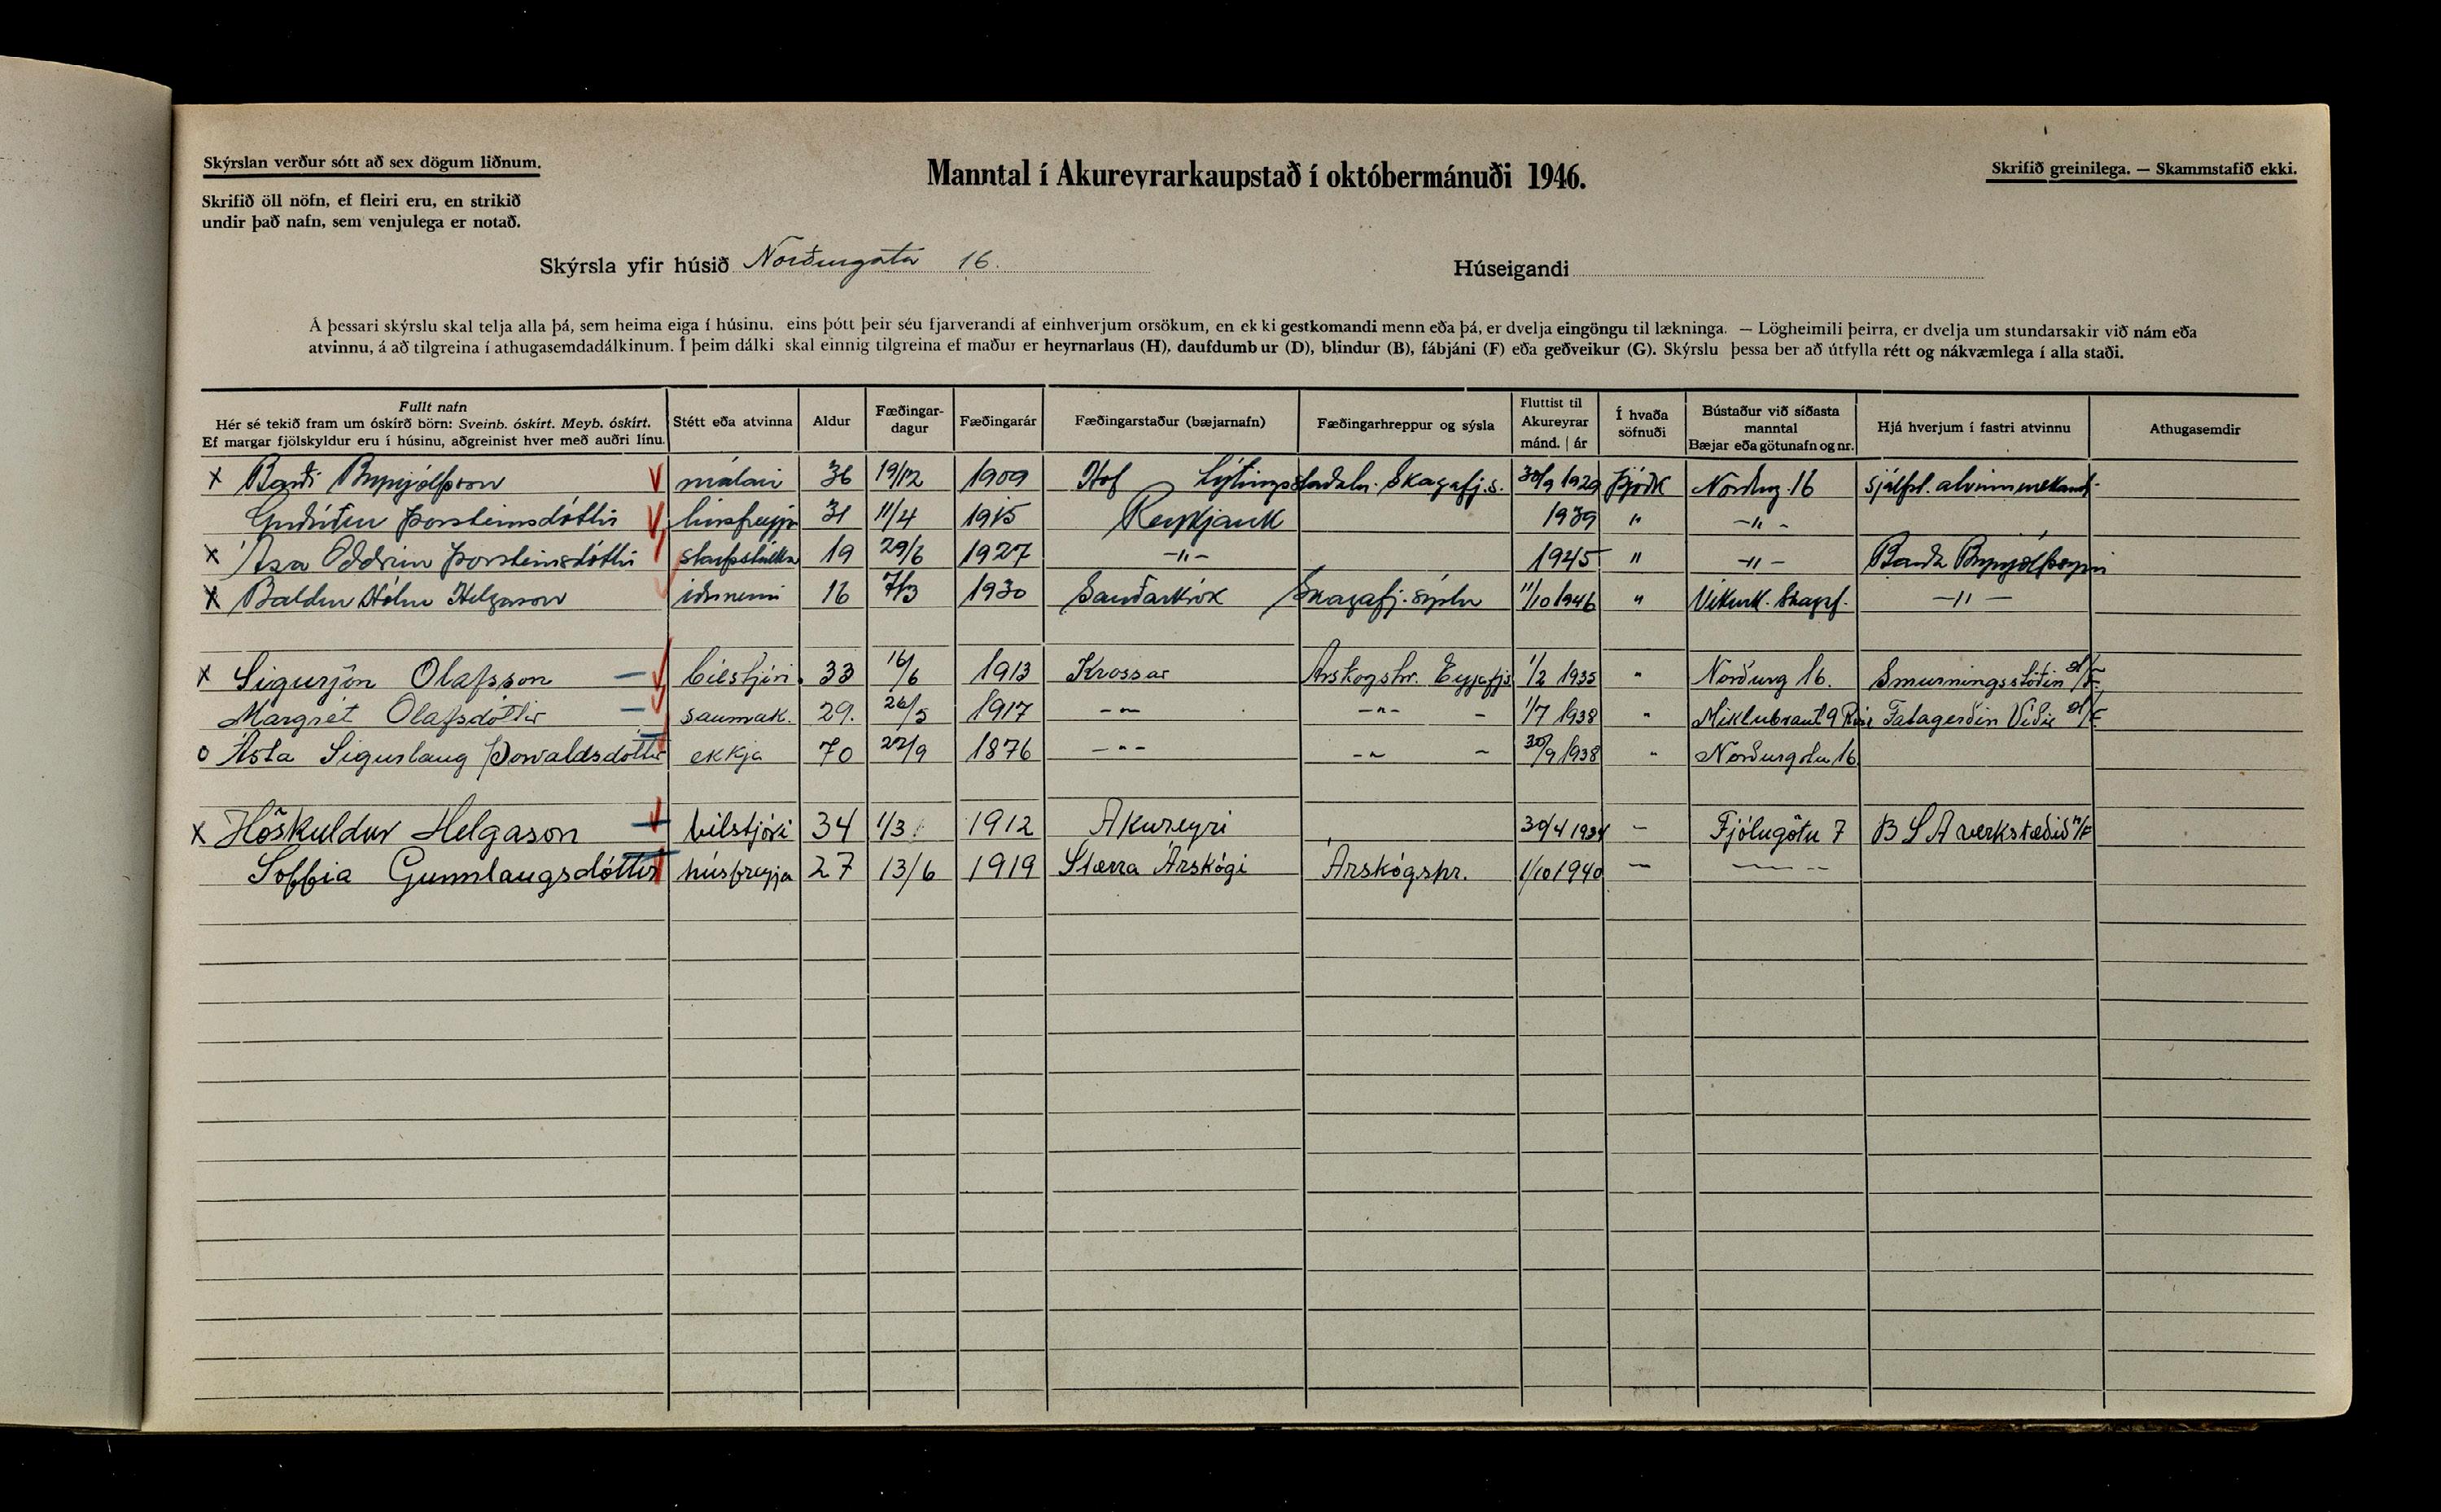 Skýrslan verður sótt að sex dögum liðnum.
Manntal í Akureyrarkaupstað í októbermánuði 1946.
Skrifið greinilega. — Skammstafið ekki.
Skrifið öll nöfn, ef fleiri eru, en strikið
undir það nafn, sem venjulega er notað.
Skýrsla yfir húsið Norðurgata 16.
Húseigandi
Á þessari skýrslu skal telja alla þá, sem heima eiga í húsinu, eins þótt þeir séu fjarverandi af einhverjum orsökum, en ekki gestkomandi menn eða þá, er dvelja eingöngu til lækninga. — Lögheimili þeirra, er dvelja um stundarsakir við nám eða
atvinnu, á að tilgreina í athugasemdadálkinum. Í þeim dálki skal einnig tilgreina ef maður er heyrnarlaus (H), daufdumbur (D), blindur (B), fábjáni (F) eða geðveikur (G). Skýrslu þessa ber að útfylla rétt og nákvæmlega í alla staði.
Fullt nafn
Hér sé tekið fram um óskírð börn: Sveinb. óskírt. Meyb. óskírt.
Ef margar fjölskyldur eru í húsinu, aðgreinist hver með auðri línu.
Stétt eða atvinna
Aldur
Fæðingar-
dagur
Fæðingarár
Fæðingarstaður (bæjarnafn)
Fæðingarhreppur og sýsla
Fluttist til
Akureyrar
mánd. | ár
Í hvaða
söfnuði
Bústaður við síðasta
manntal
Bæjar eða götunafn og nr.
Hjá hverjum í fastri atvinnu
Athugasemdir
x Barði Brynjólfsson málari 36 19/12 1909 Hof Lýtingsstaðahr. Skagafj.s. 30/9 1929 Þjóðk Norðurg. 16 sjálfst. atvinnurekandi
Þorsteinsdóttir húsfreyja 31 11/4 1915 Reykjavík 1939 " -"-
x Ása Oddrún Þorsteinsdóttir starfstúlka 19 29/6 1927 -"- 1945 " -"- Barða Brynjólfssyni
x Baldur Hólm Helgason iðnnemi 16 7/3 1930 Sauðárkrók Skagafj. sýslu 11/10 1946 " Víkurk. Skagaf. -"-
x Sigurjón Ólafsson bílstjóri 33 16/6 1913 Krossar Árskógshr. Eyjafjs 1/2 1935 " Norðurg 16. Smurningsstöðin h/f.
Margrét Ólafsdóttir saumak. 29. 26/5 1917 -"- -"- - 1/7 1938 " Miklubraut 9 Fatagerðin Víðir h/f
o Ásta Sigurlaug Þorvaldsdóttir ekkja 70 22/9 1876 -"- -"- - 30/9 1938 " Norðurgötu 16
x Höskuldur Helgason bílstjóri 34 1/3 1912 Akureyri 30/4 1934 - Fjólugötu 7 BSA verkstæðið h/f
Soffia Gunnlaugsdóttir húsfreyja 27 13/6 1919 Stærra Árskógi Árskógshr. 1/10 1940 - -"-